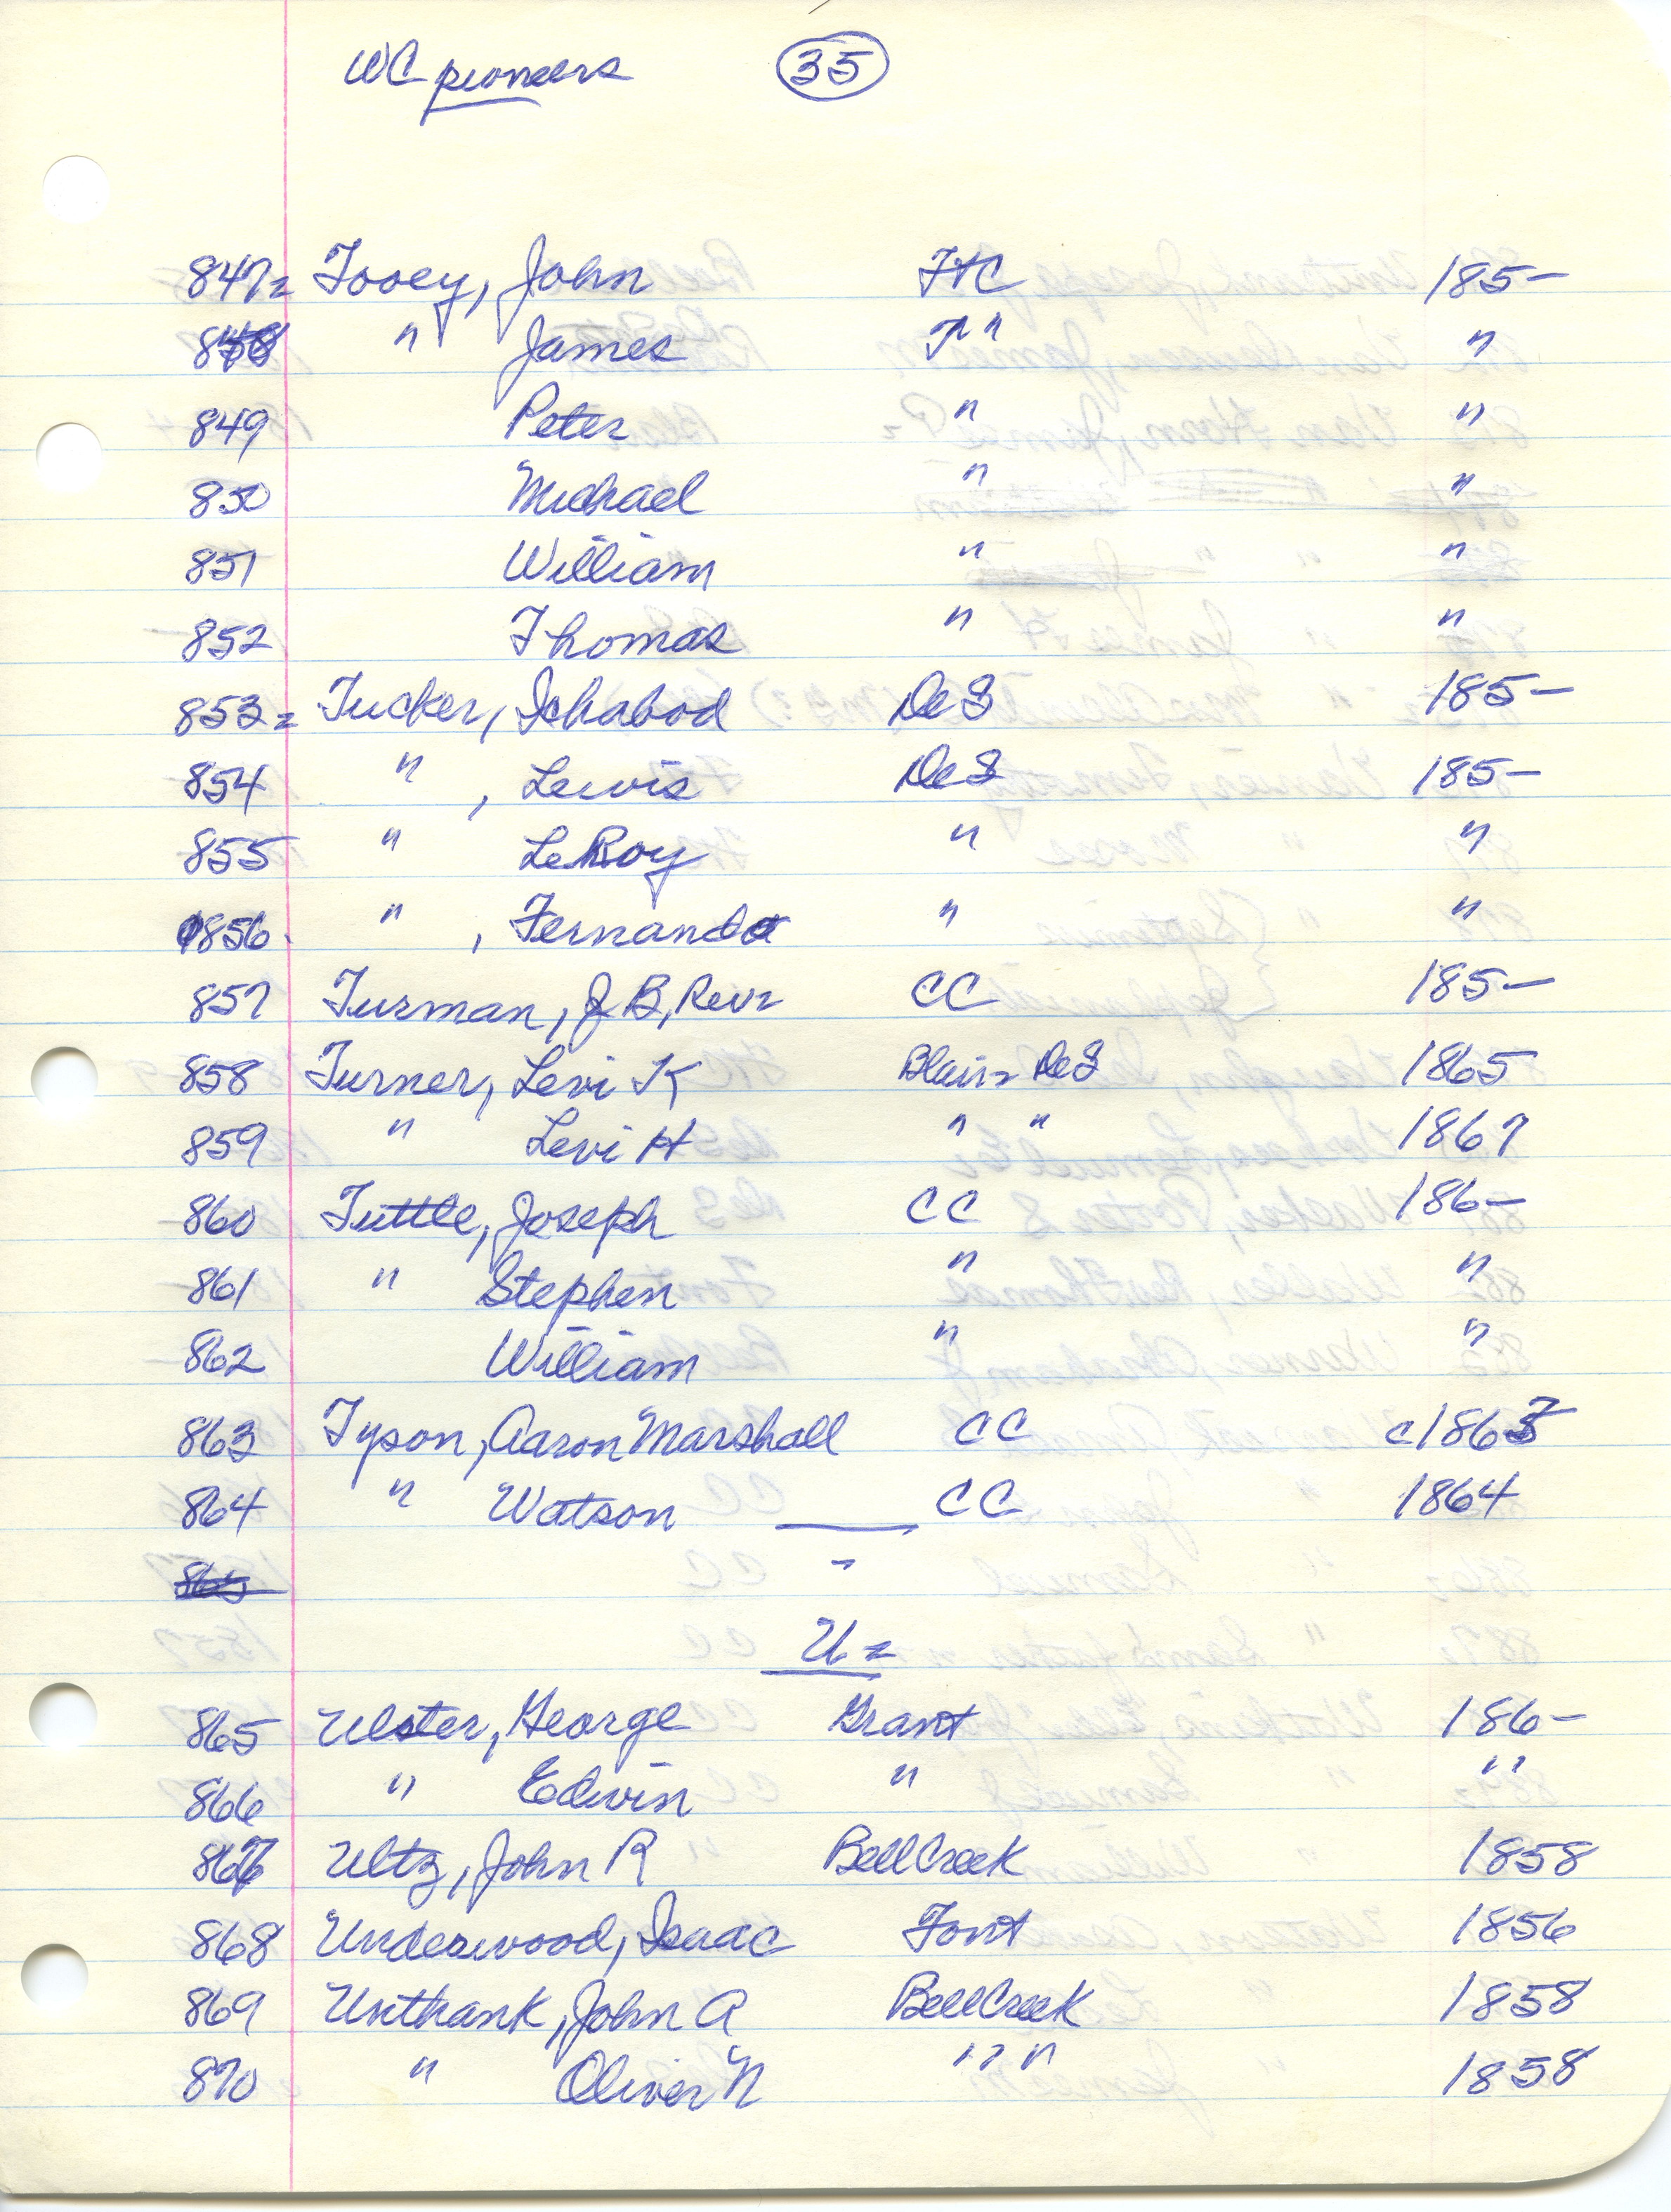 WC pioneers 35
847 Tooey, John FtC 185-
848 " James " " "
849 Peter " "
850 Michael " "
851 William " "
852 Thomas " "
853 Tucker, Ichabod DeS 185-
854 " , Lewis DeS 185-
855 " LeRoy " "
856 " , Fernando " "
857 Turman, J B, Rev CC 185-
858 Turner, Levi K Blair DeS 1865
859 " Levi H " " 1867
860 Tuttle, Joseph CC 186-
861 " Stephen " "
862 William " "
863 Tyson, Aaron Marshall CC c1867
864 " Watson CC 1864
865
U
865 Ulster, George Grant 186-
866 " Edwin " "
867 Ultz, John R Bell Creek 1858
868 Underwood, Isaac Font 1856
869 Unthank, John A Bell Creek 1858
870 " Oliver N " " 1858